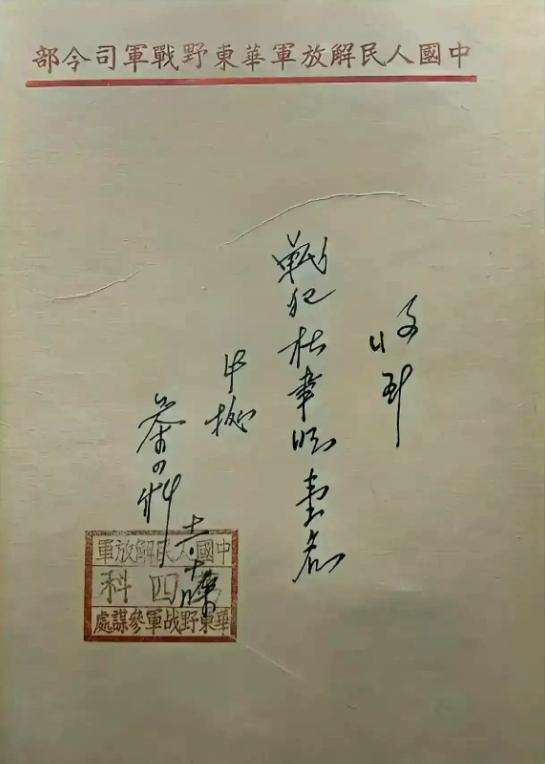 中國人民解放軍華東野戰軍司令部
收到
戰犯杜聿明壹名
此据
中國人民解放軍
四科
華東野战軍參謀處